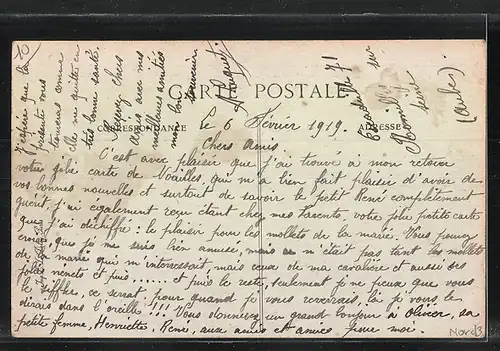 CARTE POSTALE
CORRESPONDANCE
ADRESSE
Le 6 Février 1919.
Chers Amis
C'est avec plaisir que j'ai trouvé à mon retour
votre jolie carte de qui m'a bien fait plaisir d'avoir de
vos bonnes nouvelles et surtout de savoir le petit René complètement
guéri j'ai également reçu étant chez mes parents, votre jolie petite carte
que j'ai déchiffré : le plaisir pour les mollets de la mariée. Vous pouvez
croire que je me suis bien amusé, mais ce n'était pas tant les mollets
de la mariée qui m'intéressait, mais ceux de ma cavalière et aussi ses
jolis nénets et puis...... et puis le reste, seulement je ne peux que vous
le siffler, ce serait pour quand je vous reverrais, là je vous le
dirais dans l'oreille !!! Vous donnerez un grand bonjour à Olivier, sa
petite femme, Henriette, René, aux amis et amies pour moi.
J'espère que la
présente vous
trouvera comme
elle me quitte en
très bonne santé.
Recevez chers
Amis avec mes
meilleures amitiés
mon bon
souvenir
Escadrille 71
sur
Romilly
Seine
(Aube).
Nord3